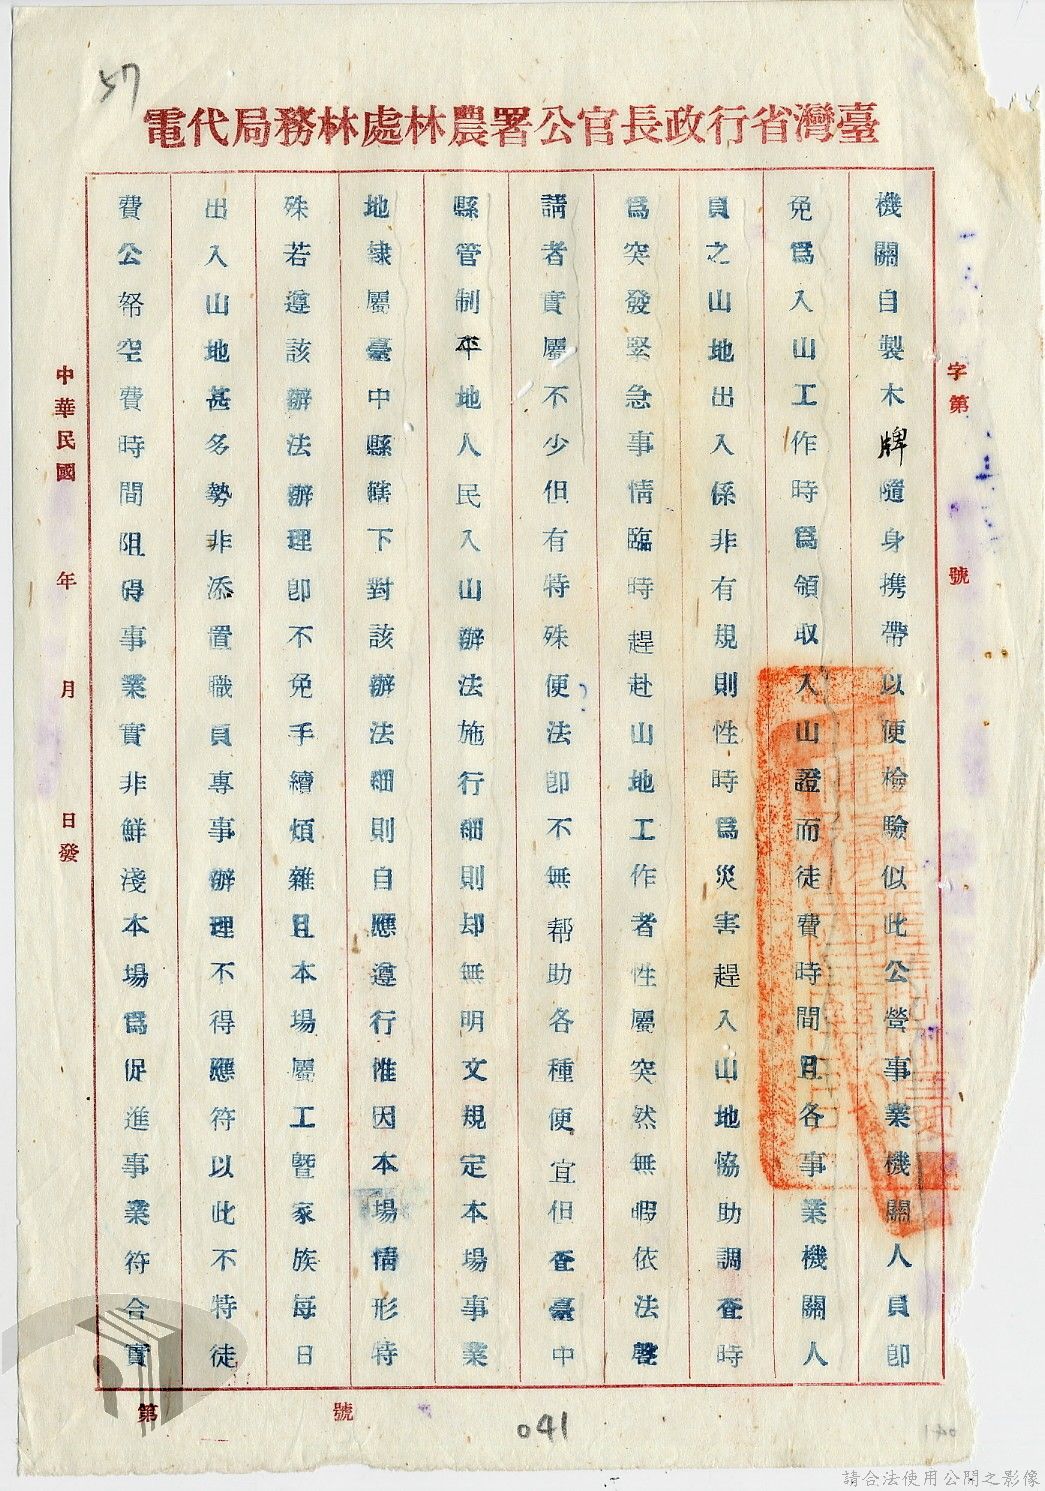 57
臺灣省行政長官公署農林處林務局代電
字第 號
機關自製木牌隨身携帶以便檢驗似此公營事業機關人員卽
免爲入山工作時爲領取入山證而徒費時間且各事業機關人
員之山地出入係非有規則性時爲災害趕入山地協助調查時
爲突發緊急事情臨時趕赴山地工作者性屬突然無暇依法聲
請者實屬不少但有特殊便法卽不無帮助各種便宜但查臺中
縣管制平地人民入山辦法施行細則却無明文規定本場事業
地隸屬臺中縣轄下對該辦法細則自應遵行惟因本場情形特
殊若遵該辦法辦理卽不免手續煩雜且本場屬工暨家族每日
出入山地甚多勢非添置職員專事辦理不得應符以此不特徒
費公帑空費時間阻碍事業實非鮮淺本場爲促進事業符合實
中華民國 年 月 日發
第 號
041
請合法使用公開之影像